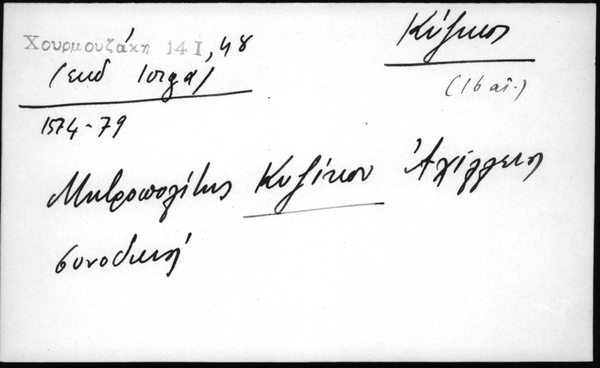 Χουρμουζάκη 14 Ι, 48
(εκδ Ιοργα)
Κύζικος
(16 αι.)
1574-79
Μητροπολίτης Κυζίκου Ἀχίλλειος
συνοδική